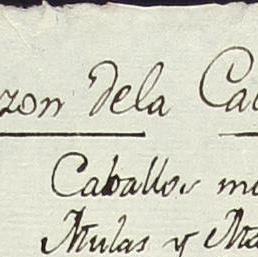 zon dela Ca
Caballos m
Mulas y Ma